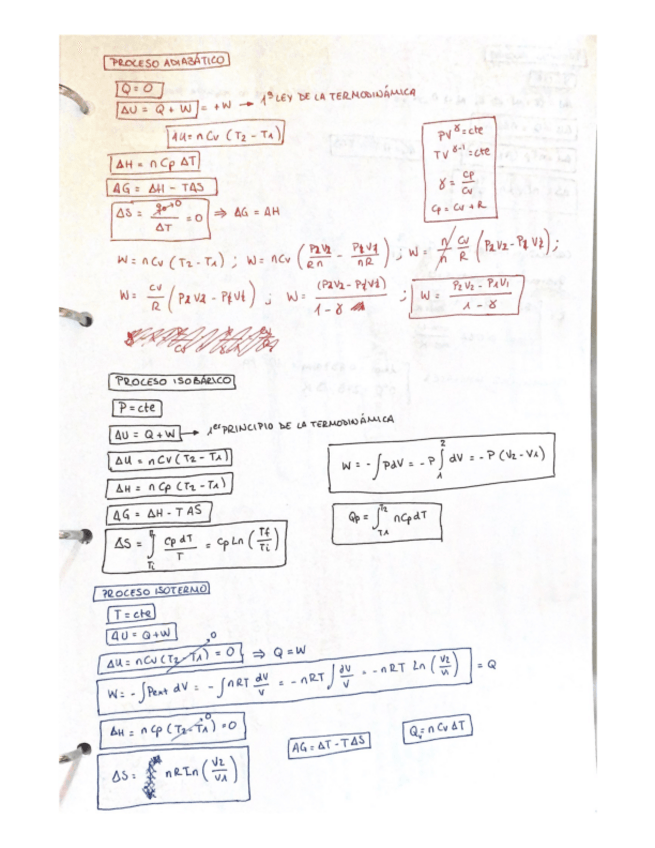 PROCESO ADIABÁTICO
Q = 0
ΔU = Q + W = +W → 1ª LEY DE LA TERMODINÁMICA
ΔU = n Cv (T2 - T1)
PV^γ = cte
TV^γ-1 = cte
γ = Cp/Cv
Cp = Cv + R
ΔH = n Cp ΔT
ΔG = ΔH - TΔS
ΔS = q→0/ΔT = 0 ⇒ ΔG = ΔH
W = n Cv (T2 - T1) ; W = n Cv (P2V2/Rn - P1V1/nR) ; W = n/n Cv/R (P2V2 - P1V1) ;
W = Cv/R (P2V2 - P1V1) ; W = (P2V2 - P1V1)/1 - γ ; W = P2V2 - P1V1/1 - γ
PROCESO ISOBÁRICO
P = cte
ΔU = Q + W → 1er PRINCIPIO DE LA TERMODINÁMICA
ΔU = n Cv (T2 - T1)
W = - ∫ P dV = - P ∫₁² dV = - P (V2 - V1)
ΔH = n Cp (T2 - T1)
ΔG = ΔH - T ΔS
Qp = ∫T1 T2 n Cp dT
ΔS = ∫Ti Cp dT/T = Cp Ln (Tf/Ti)
PROCESO ISOTERMO
T = cte
ΔU = Q + W
ΔU = n Cv (T2 - T1)→0 = 0 ⇒ Q = W
W = - ∫ Pext dV = - ∫ nRT dV/V = - nRT ∫ dV/V = - nRT Ln (V2/V1) = Q
ΔH = n Cp (T2 - T1)→0 = 0
ΔG = ΔT - TΔS
Qv = n Cv ΔT
ΔS = nR Ln (V2/V1)